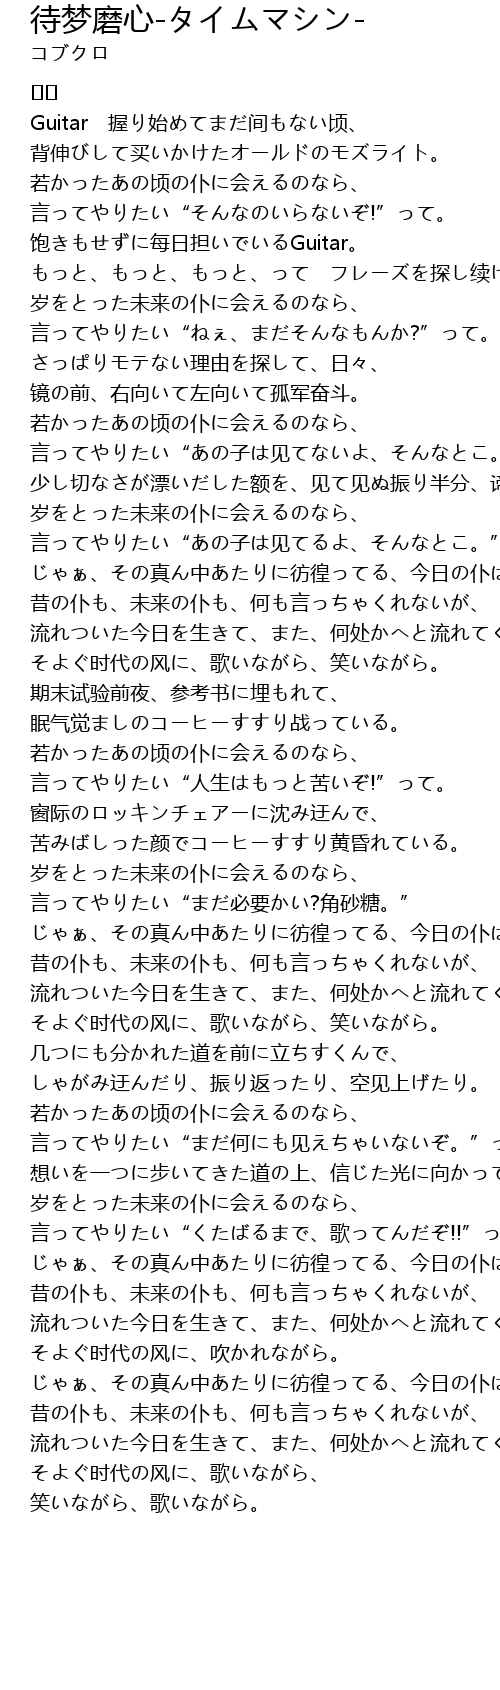 待梦磨心-タイムマシン-
コブクロ
Guitar　握り始めてまだ间もない顷、
背伸びして买いかけたオールドのモズライト。
若かったあの顷の仆に会えるのなら、
言ってやりたい“そんなのいらないぞ!”って。
饱きもせずに毎日担いでいるGuitar。
もっと、もっと、もっと、って　フレーズを探し续け
岁をとった未来の仆に会えるのなら、
言ってやりたい“ねぇ、まだそんなもんか?”って。
さっぱりモテない理由を探して、日々、
镜の前、右向いて左向いて孤军奋斗。
若かったあの顷の仆に会えるのなら、
言ってやりたい“あの子は见てないよ、そんなとこ。
少し切なさが漂いだした额を、见て见ぬ振り半分、
岁をとった未来の仆に会えるのなら、
言ってやりたい“あの子は见てるよ、そんなとこ。”
じゃぁ、その真ん中あたりに彷徨ってる、今日の仆は
昔の仆も、未来の仆も、何も言っちゃくれないが、
流れついた今日を生きて、また、何处かへと流れてく
そよぐ时代の风に、歌いながら、笑いながら。
期末试验前夜、参考书に埋もれて、
眠气觉ましのコーヒーすすり战っている。
若かったあの顷の仆に会えるのなら、
言ってやりたい“人生はもっと苦いぞ!”って。
窗际のロッキンチェアーに沈み迂んで、
苦みばしった颜でコーヒーすすり黄昏れている。
岁をとった未来の仆に会えるのなら、
言ってやりたい“まだ必要かい?角砂糖。”
じゃぁ、その真ん中あたりに彷徨ってる、今日の仆は
昔の仆も、未来の仆も、何も言っちゃくれないが、
流れついた今日を生きて、また、何处かへと流れてく
そよぐ时代の风に、歌いながら、笑いながら。
几つにも分かれた道を前に立ちすくんで、
しゃがみ迂んだり、振り返ったり、空见上げたり。
若かったあの顷の仆に会えるのなら、
言ってやりたい“まだ何にも见えちゃいないぞ。”っ
想いを一つに歩いてきた道の上、信じた光に向かって
岁をとった未来の仆に会えるのなら、
言ってやりたい“くたばるまで、歌ってんだぞ!!”っ
じゃぁ、その真ん中あたりに彷徨ってる、今日の仆は
昔の仆も、未来の仆も、何も言っちゃくれないが、
流れついた今日を生きて、また、何处かへと流れてく
そよぐ时代の风に、吹かれながら。
じゃぁ、その真ん中あたりに彷徨ってる、今日の仆は
昔の仆も、未来の仆も、何も言っちゃくれないが、
流れついた今日を生きて、また、何处かへと流れてく
そよぐ时代の风に、歌いながら、
笑いながら、歌いながら。